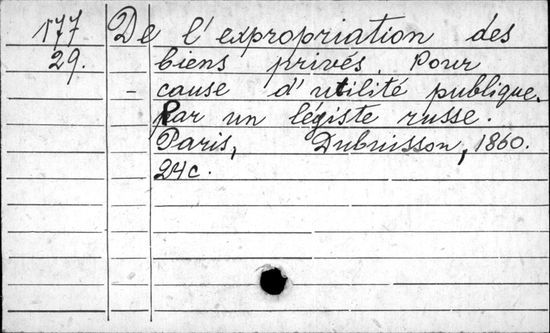 177 De l'expropriation des
29. biens privés pour
- cause d'utilité publique.
Par un légiste russe.
Paris, Dubuisson, 1860.
24c.